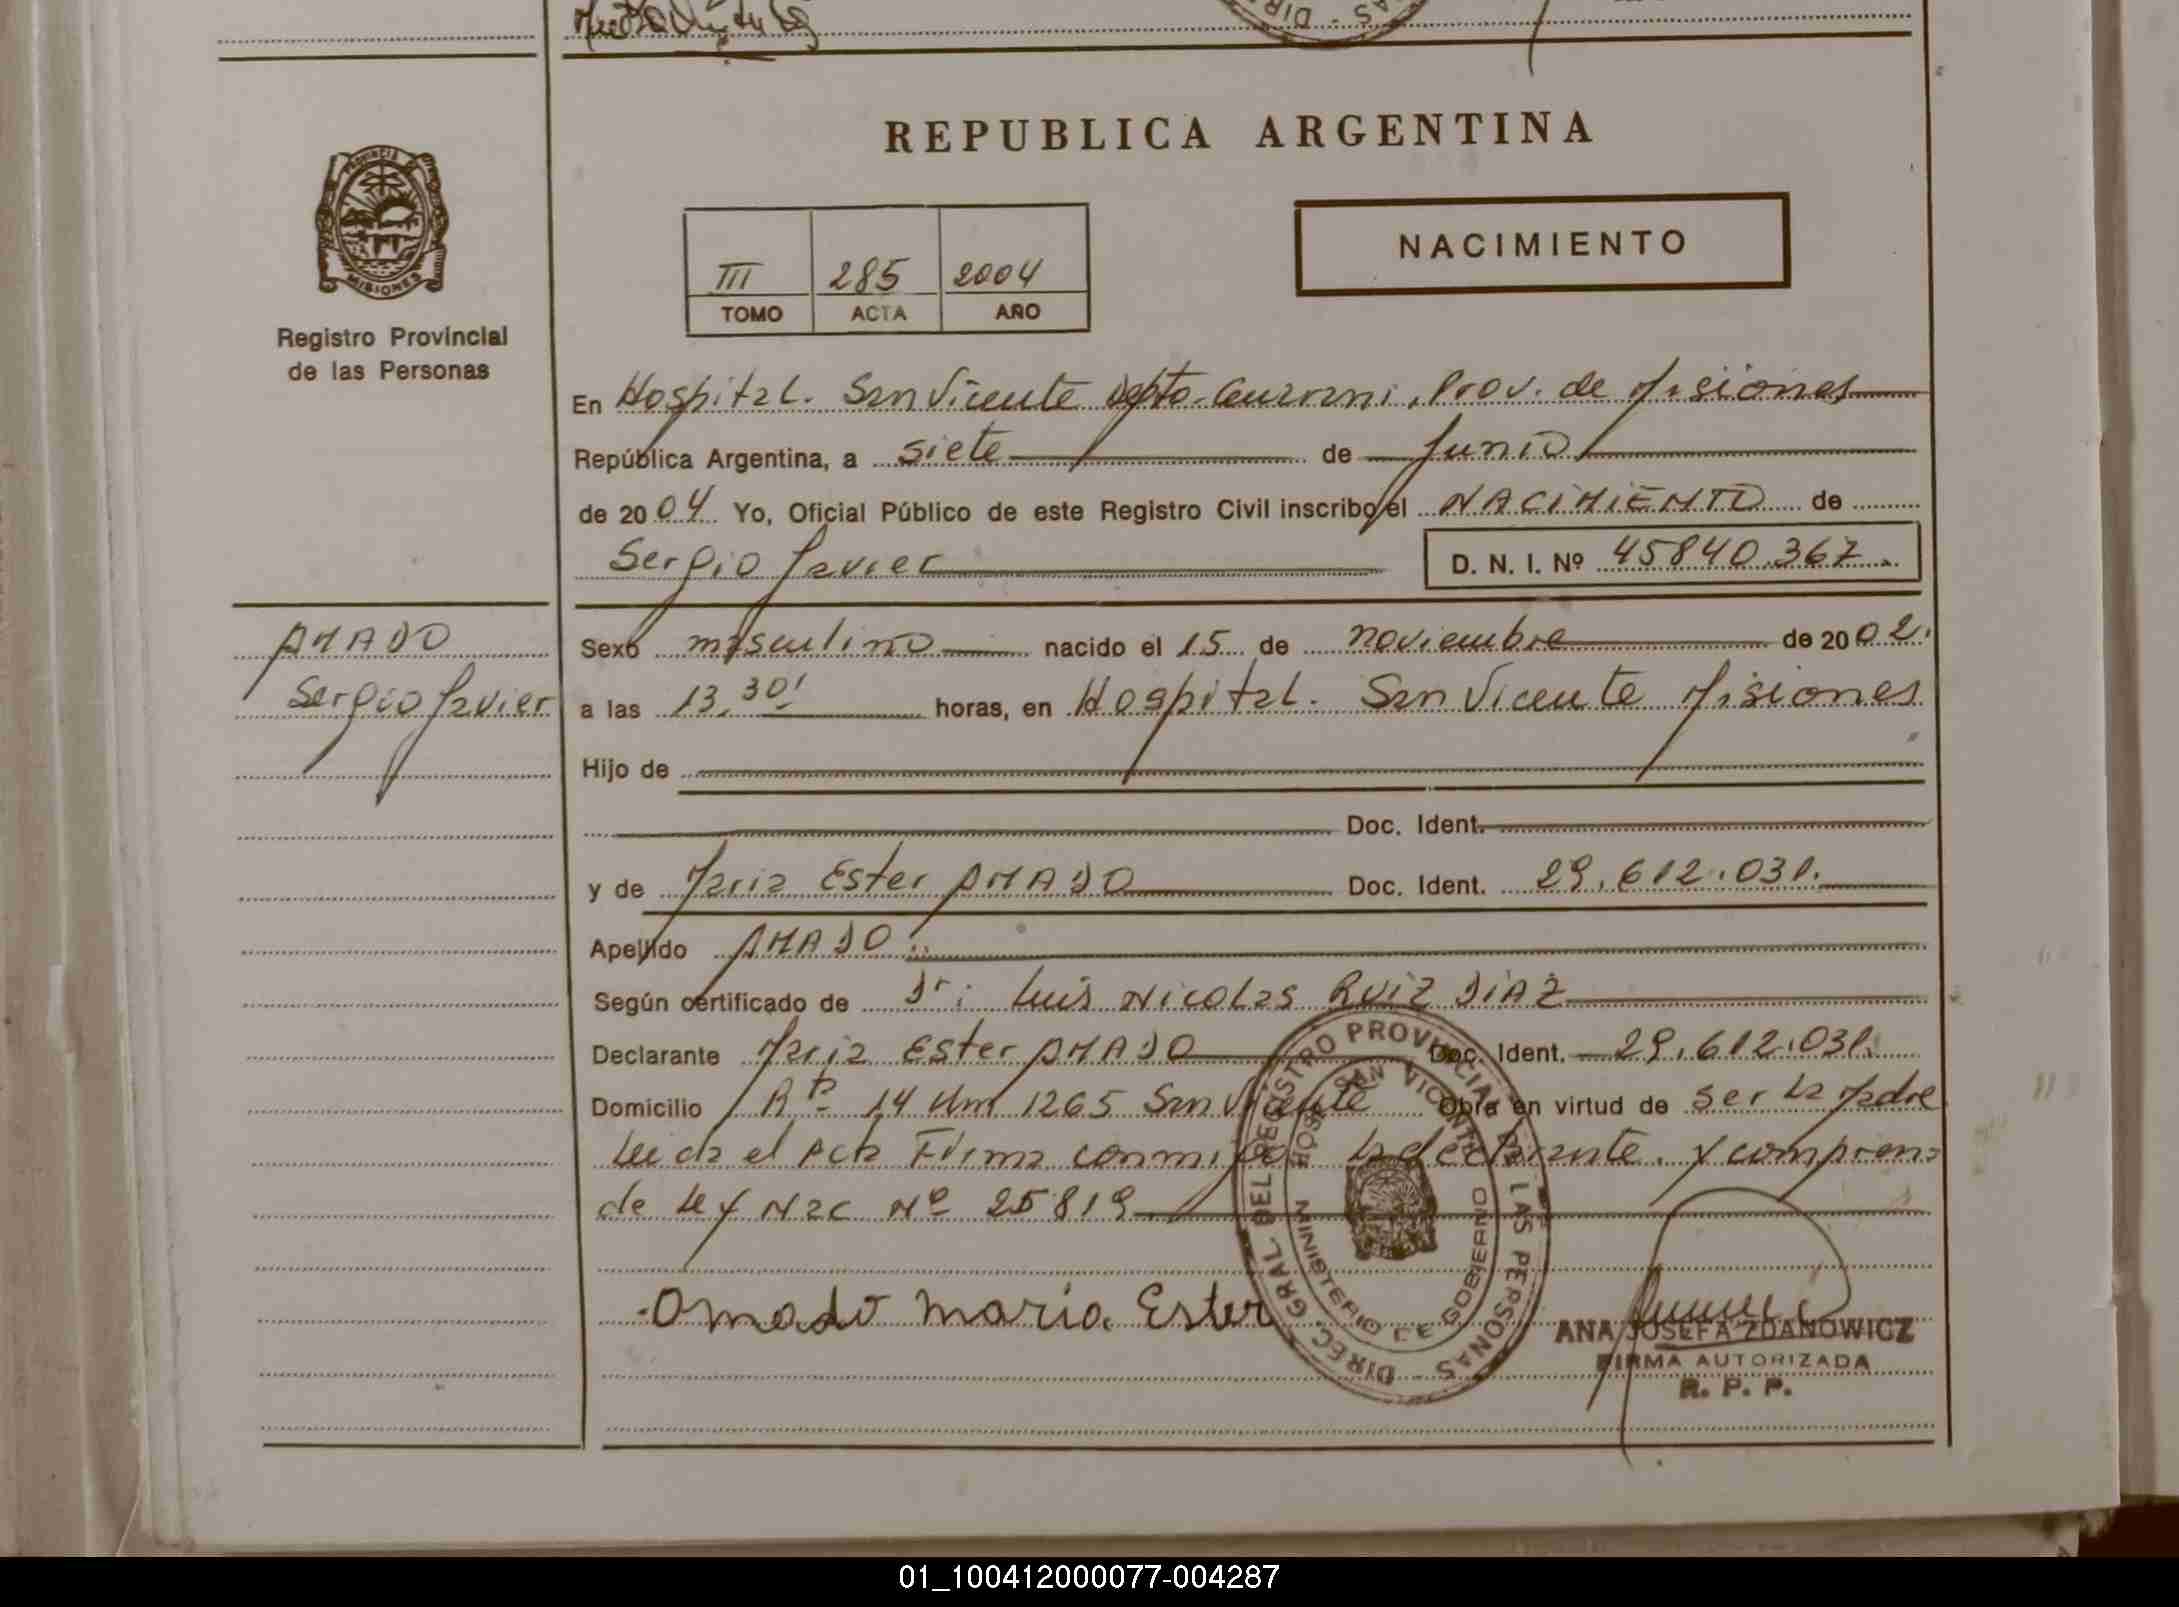 REPUBLICA ARGENTINA
PROVINCIA DE MISIONES
Registro Provincial
de las Personas
NACIMIENTO
III 285 2004
TOMO ACTA AÑO
En Hospital. San Vicente Depto. Guarani, Prov. de Misiones
República Argentina, a siete de Junio
de 2004 Yo, Oficial Público de este Registro Civil inscribo el NACIMIENTO de
Sergio Javier D. N. I. Nº 45840.367.
AMADO
Sergio Javier
Sexo masculino nacido el 15 de noviembre de 2002.
a las 13,30' horas, en Hospital. San Vicente Misiones
Hijo de
Doc. Ident.
y de Maria Ester AMADO Doc. Ident. 29.612.031.
Apellido AMADO
Según certificado de Dr: Luis Nicolas RUIZ DIAZ
Declarante Maria Ester AMADO Doc. Ident. 29.612.031.
Domicilio Rta 14 Km 1265 San Vicente Obra en virtud de ser la Madre
Leida el Acta Firma conmigo la declarante. y compren=
de Ley Nac Nº 25819
Amado Maria Ester
DIREC. GRAL. DEL REGISTRO PROVINCIAL DE LAS PERSONAS
HOSP. SAN VICENTE
MINISTERIO DE GOBIERNO
ANA JOSEFA ZDANOWICZ
FIRMA AUTORIZADA
R. P. P.
01_100412000077-004287